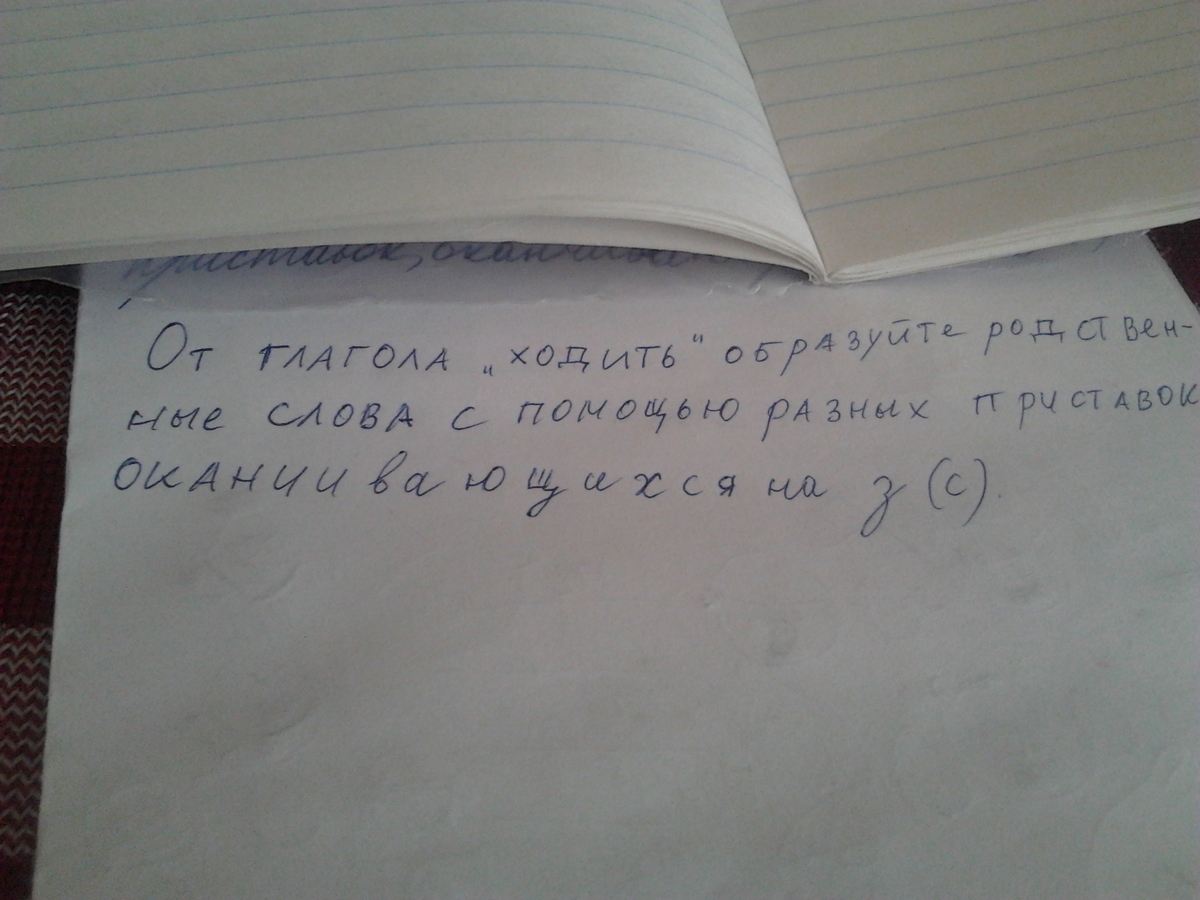 приставок, оканчиваю
От глагола „ходить“ образуйте родствен-
ные слова с помощью разных приставок
оканчивающихся на з (с).